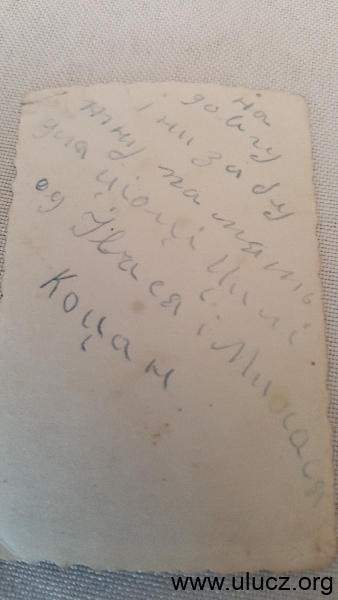 на
довгу
і ни забу
тну память
для Ціоці Цилі
од Івася і Михася
Коцан
www.ulucz.org